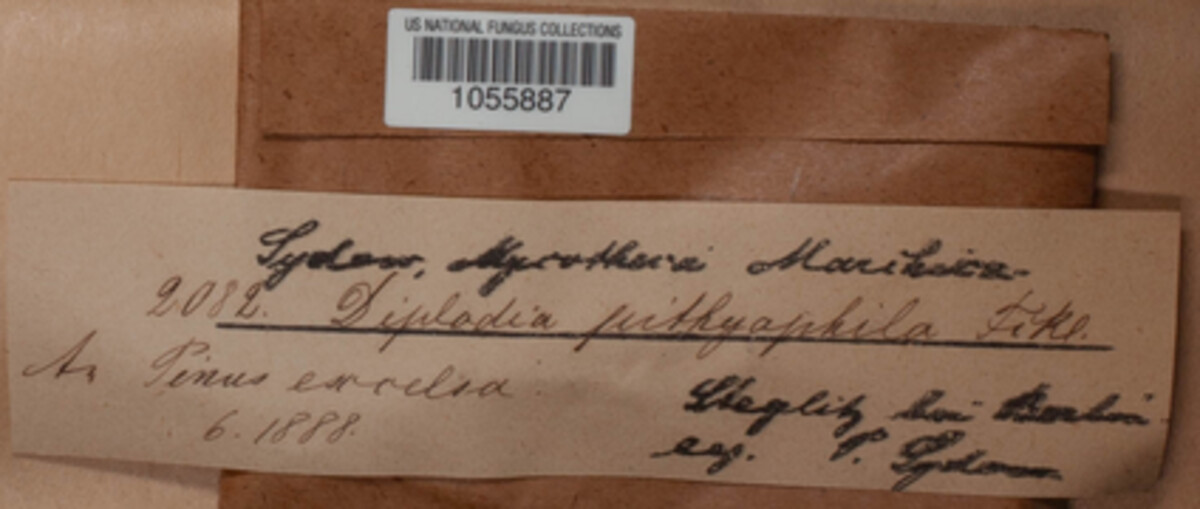 US NATIONAL FUNGUS COLLECTIONS
1055887
Sydow, Mycotheca Marchica
2082. Diplodia pithyophila Fckl.
An Pinus excelsa.
6. 1888.
Steglitz bei Berlin
leg. P. Sydow